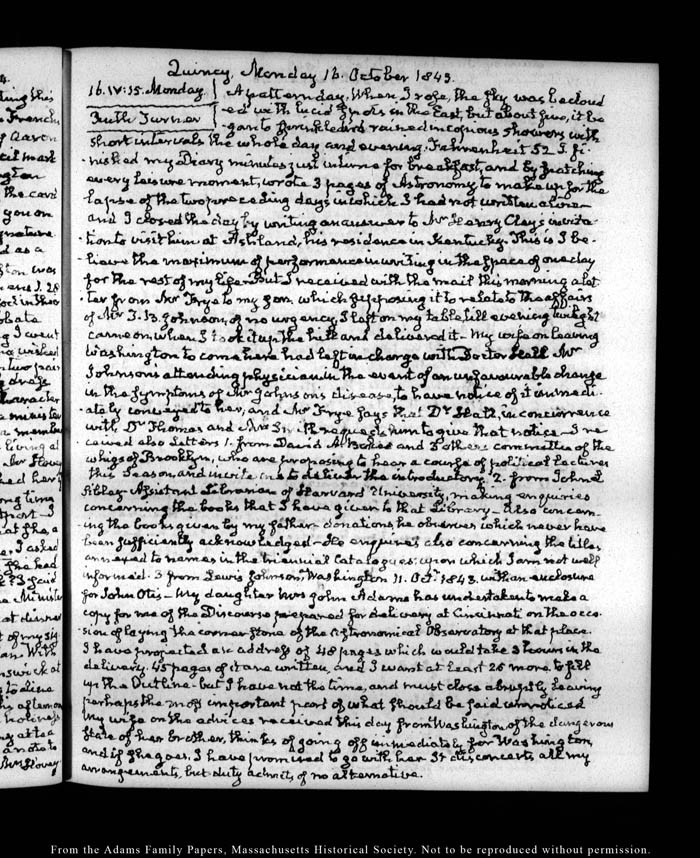 Quincy, Monday 16. October 1843.
16. IV:15. Monday. A patternday. When I rose, the sky was becloud
Ruth Turner ed with lucid spots in the East, but about five, it be
gan to sprinkle and rained in copious showers with
short intervals the whole day and evening. Fahrenheit 52 I fi-
nished my Diary minutes just in time for breakfast and by snatching
every leisure moment, wrote 3 pages of Astronomy, to make up for the
lapse of the two preceding days in which I had not written a line
and I closed the day by writing an answer to Mr Henry Clay's invita-
tion to visit him at Ashland, his residence in Kentucky. This is I be-
lieve the maximum of performance in writing in the space of one day
for the rest of my life. But I received with the mail this morning a let
ter from Mr Frye to my son, which supposing it to relate to the affairs
of Mr T. B. Johnson, of no urgency, I left on my table till evening twilight
came on when I took it up the hill and delivered it. My wife on leaving
Washington to come here had left in charge with Doctor Hall Mr
Johnson's attending physician in the event of an unfavourable change
in the symptoms of Mr Johnson's disease, to have notice of it immedi-
ately conveyed to her, and Mr Frye says that Dr Hall, in concurrence
with Dr Thomas and Mrs Smith requests him to give that notice. I re-
ceived also Letters 1. from David A. and 7 others committee of the
whigs of Brooklyn, who are proposing to hear a course of political Lectures
this Season, and invite me to deliver the introductory. 2. from John L
Sibley Assistant Librarian of Harvard University, making enquiries
concerning the books that I have given to that Library. Also concern-
ing the books given by my father donations, he observes which never have
been sufficiently acknowledged. He enquires also concerning the titles
annexed to names in the triennial Catalogues upon which I am not well
informed. 3 from Lewis Johnson, Washington 11. Oct. 1843. with an enclosure
for John Otis. My daughter Mrs John Adams has undertaken to make a
copy for me of the Discourse prepared for delivery at Cincinnati on the occa-
sion of laying the corner stone of the Astronomical Observatory at that place.
I have projected an address of 48 pages which would take 3 hours in the
delivery. 45 pages of it are written, and I want at least 26 more to fill
up the Outline. but I have not the time, and must close abruptly leaving
perhaps the most important part of what should be said unnoticed
My wife on the advices received this day from Washington of the dangerous
state of her brother, thinks of going off immediately for Washington,
and if she goes, I have promised to go with her. It disconcerts all my
arrangements, but duty admits of no alternative.
From the Adams Family Papers, Massachusetts Historical Society. Not to be reproduced without permission.